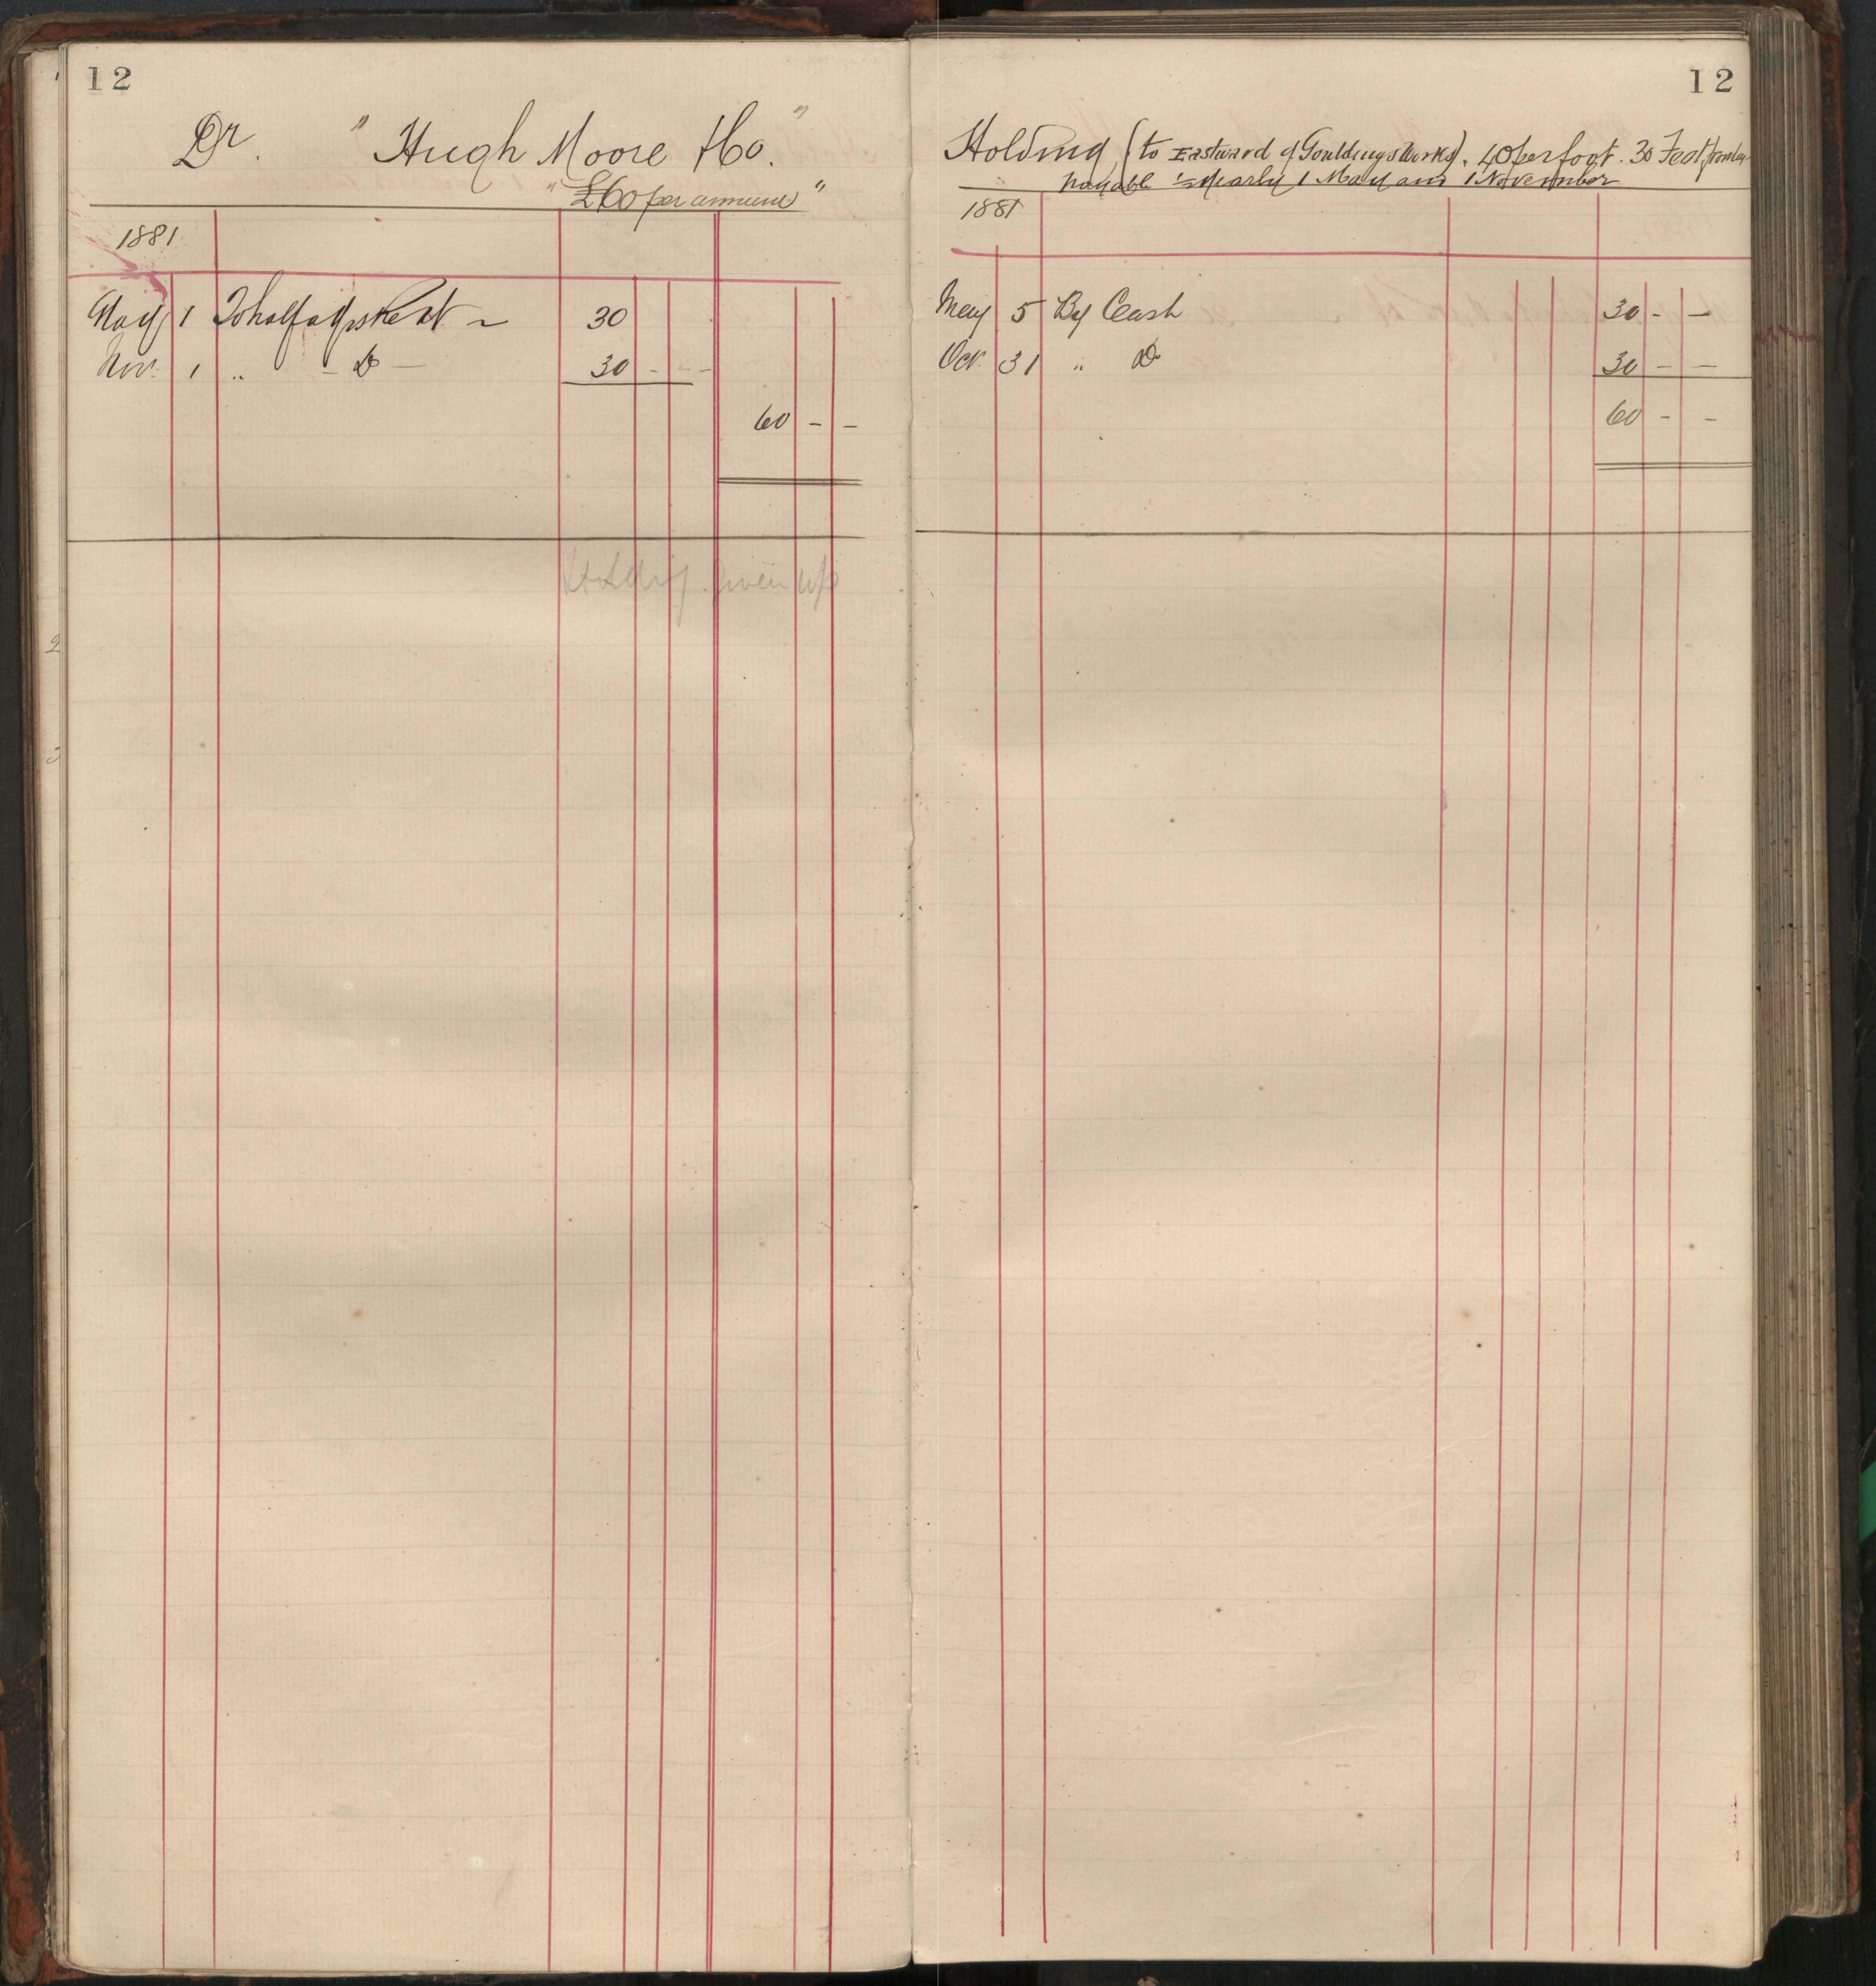 12
Dr. " Hugh Moore & Co. "
" £60 per annum "
1881
May 1 To half a yrs Rent ~ 30
Nov. 1 " - Do - 30 - -
60 - -
Holding given up
12
Holding (to Eastward of Gouldings Works). 40 per foot. 30 Feet
payable ½ yearly 1 May and 1 November
1881
May 5 By Cash 30 - -
Oct. 31 " Do 30 - -
60 - -